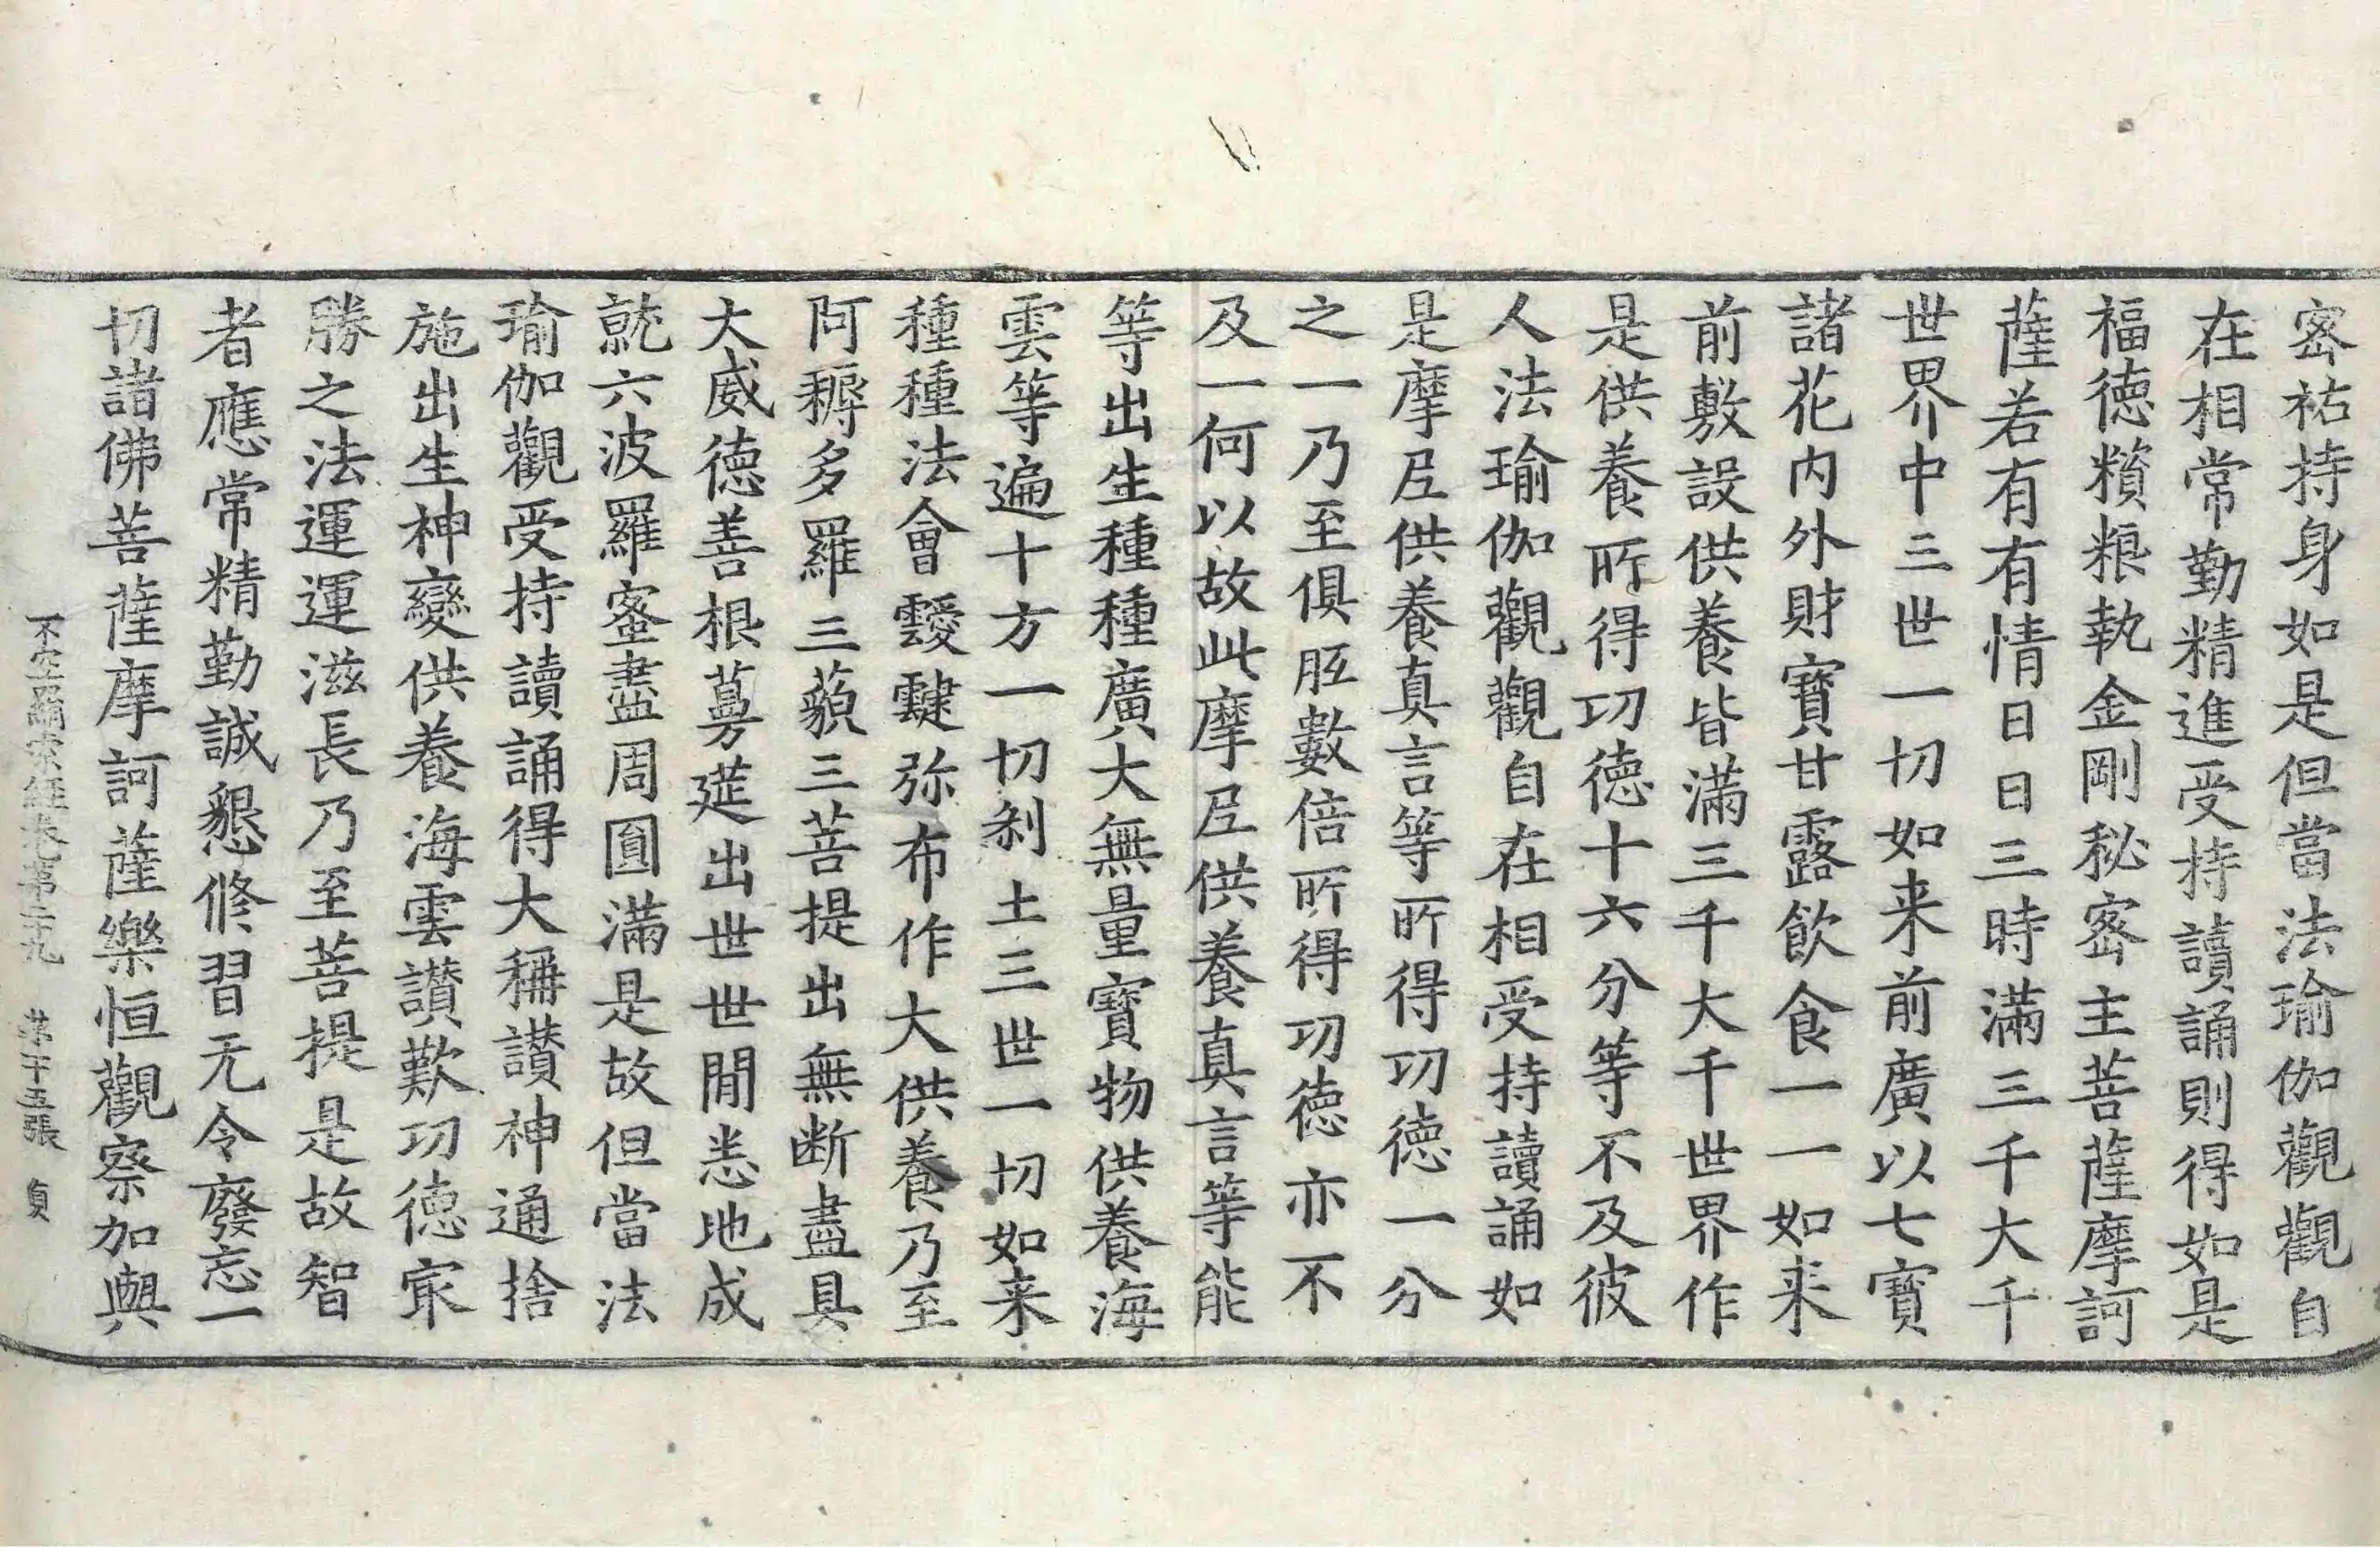 密祐持身如是但當法瑜伽觀觀自
在相常勤精進受持讀誦則得如是
福德䊩粮執金剛秘密主菩薩摩訶
薩若有有情日日三時滿三千大千
世界中三世一切如来前廣以七寶
諸花内外財寶甘露飲食一一如来
前敷設供養皆滿三千大千世界作
是供養所得功德十六分等不及彼
人法瑜伽觀觀自在相受持讀誦如
是摩尼供養真言等所得功德一分
之一乃至俱胝數倍所得功德亦不
及一何以故此摩尼供養真言等能
等出生種種廣大無量寶物供養海
雲等遍十方一切刹土三世一切如来
種種法會靉靆弥布作大供養乃至
阿耨多羅三藐三菩提出無断盡具
大威德善根蕚莚出世世間悉地成
就六波羅蜜盡周圓滿是故但當法
瑜伽觀受持讀誦得大稱讃神通捨
施出生神變供養海雲讃歎功德冣
勝之法運運滋長乃至菩提是故智
者應常精勤誠懇修習无令廢忘一
切諸佛菩薩摩訶薩樂恒觀察加與
不空羂索經卷第二十九 第十五張 貞